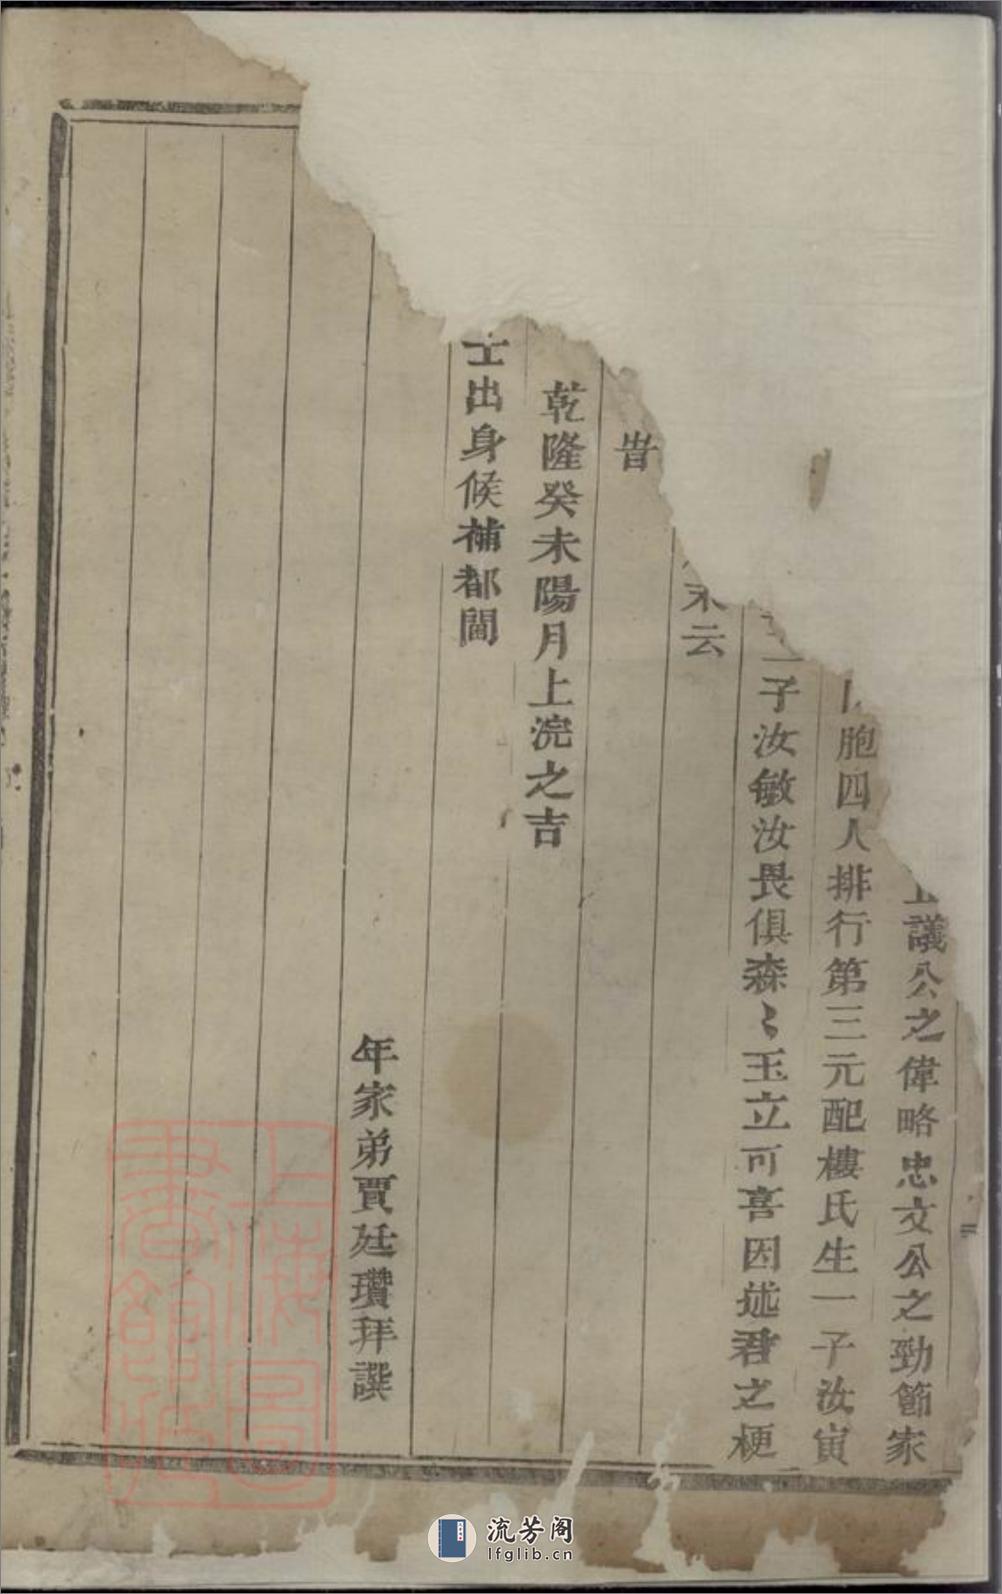 議公之偉略忠文公之勁節家
胞四人排行第三元配樓氏生一子汝寅
二子汝敏汝畏俱森〻玉立可喜因述君之梗
末云
旹
乾隆癸未陽月上浣之吉
士出身候補都閫
年家弟賈廷瓚拜譔
上海圖書館藏
流芳阁
lfglib.cn